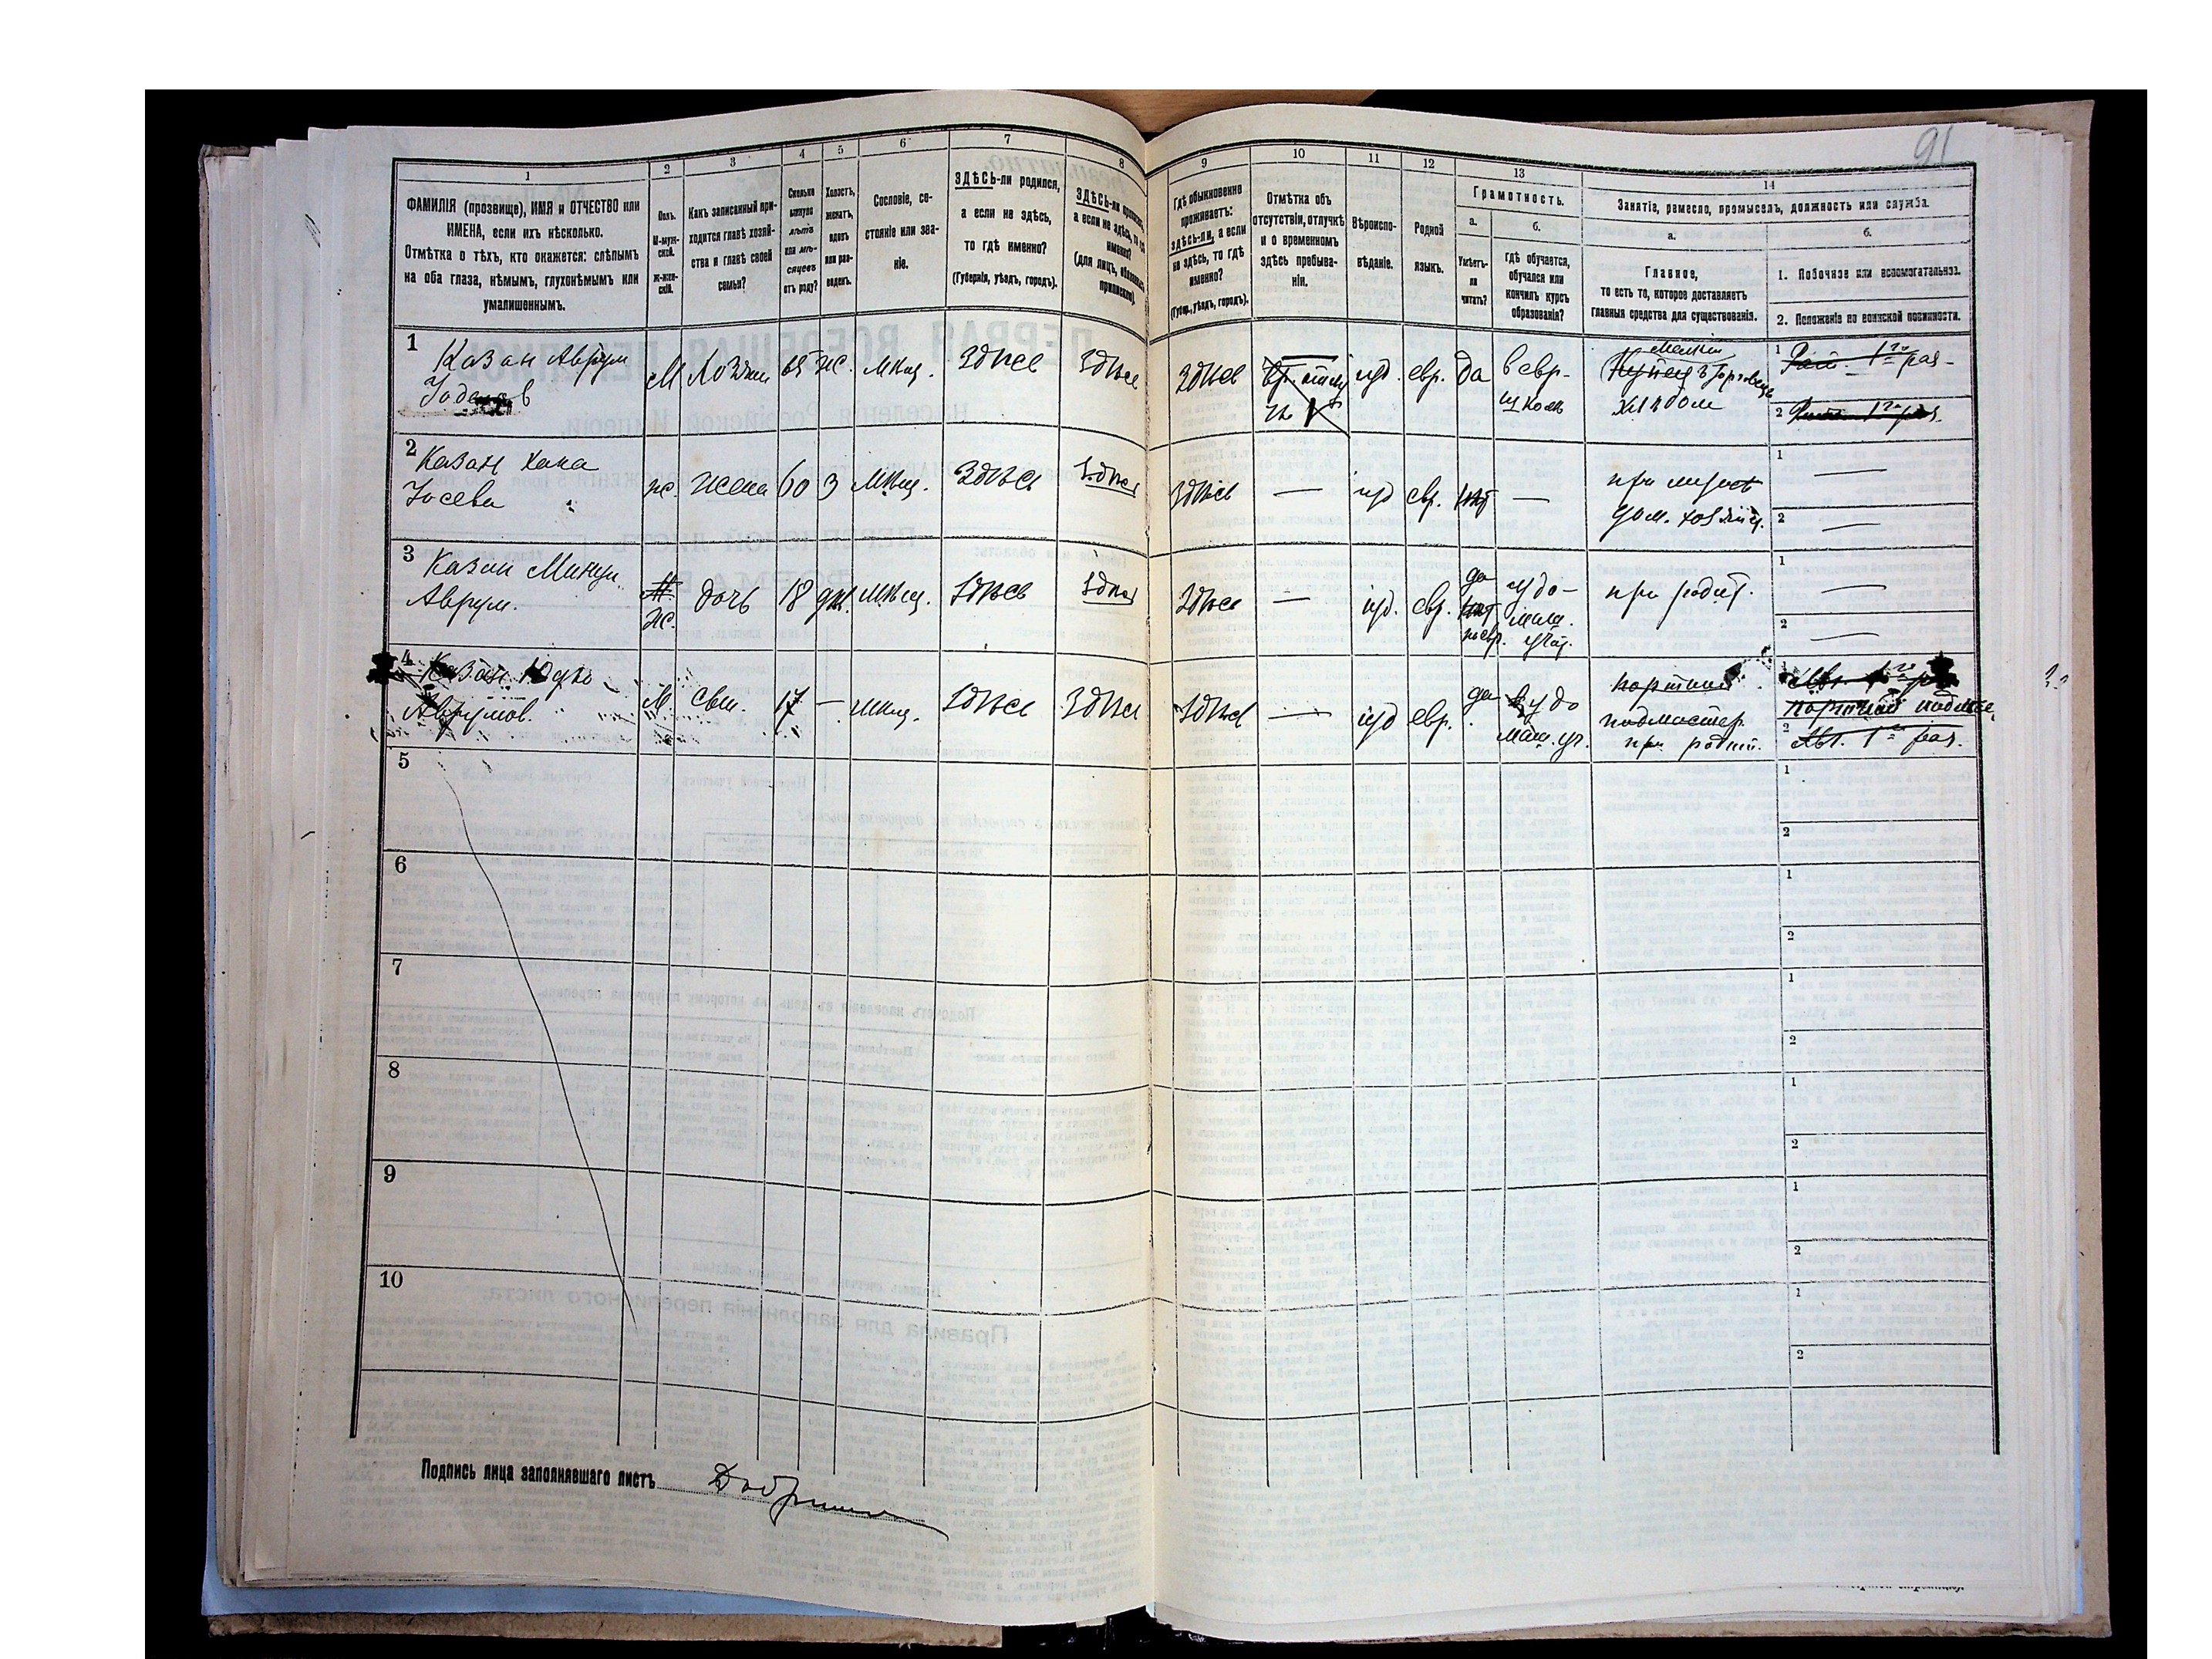 91
1
2
3
4
5
6
7
8
9
10
11
12
13
14
ФАМИЛІЯ (прозвище), ИМЯ и ОТЧЕСТВО или
ИМЕНА, если ихъ нѣсколько.
Отмѣтка о тѣхъ, кто окажется: слѣпымъ
на оба глаза, нѣмымъ, глухонѣмымъ или
умалишеннымъ.
Полъ.
М-муж-
ской.
Ж-жен-
скій.
Какъ записанный при-
ходится главѣ хозяй-
ства и главѣ своей
семьи?
Сколько
минуло
лѣтъ
или мѣ-
сяцевъ
отъ роду?
Холостъ,
женатъ,
вдовъ
или раз-
веденъ.
Сословіе, со-
стояніе или зва-
ніе.
ЗДѢСЬ-ли родился,
а если не здѣсь,
то гдѣ именно?
(Губернія, уѣздъ, городъ).
ЗДѢСЬ-ли приписанъ,
а если не здѣсь, то гдѣ
именно?
(для лицъ, обязанныхъ
припискою).
Гдѣ обыкновенно
проживаетъ:
здѣсь-ли, а если
не здѣсь, то гдѣ
именно?
(Губер., уѣздъ, городъ).
Отмѣтка объ
отсутствіи, отлучкѣ
и о временномъ
здѣсь пребыва-
ніи.
Вѣроиспо-
вѣданіе.
Родной
языкъ.
Грамотность.
а.
б.
Умѣетъ-
ли
читать?
гдѣ обучается,
обучался или
кончилъ курсъ
образованія?
Занятіе, ремесло, промыселъ, должность или служба.
а.
б.
Главное,
то есть то, которое доставляетъ
главныя средства для существованія.
1. Побочное или вспомогательное.
2. Положеніе по воинской повинности.
1
Казан Аврум
М
65
Здѣсь
Здѣсь
Здѣсь
іуд.
евр.
да
в евр.
школѣ
Мелкій
хлѣбом
1
2
2
Казан Хана
Іосева
ж.
жена
60
З
Мѣщ.
Здѣсь
Здѣсь
Здѣсь
—
іуд
евр.
нѣт
—
при мужѣ
дом. хозяйц.
1
—
2
—
3
Казан
Аврум.
М.
Ж.
дочь
18
дѣв.
Мѣщ.
Здѣсь
Здѣсь
Здѣсь
—
іуд.
евр.
да
нѣт
у до-
маш.
учит.
при родит.
1
—
2
—
4
Казан
Аврумов.
М.
сын.
17
—
мѣщ.
Здѣсь
Здѣсь
Здѣсь
—
іуд
евр.
да
у до
маш. уч.
портной
подмастер.
при родит.
2
5
1
2
6
1
2
7
1
2
8
1
2
9
1
2
10
1
2
Подпись лица заполнявшаго листъ